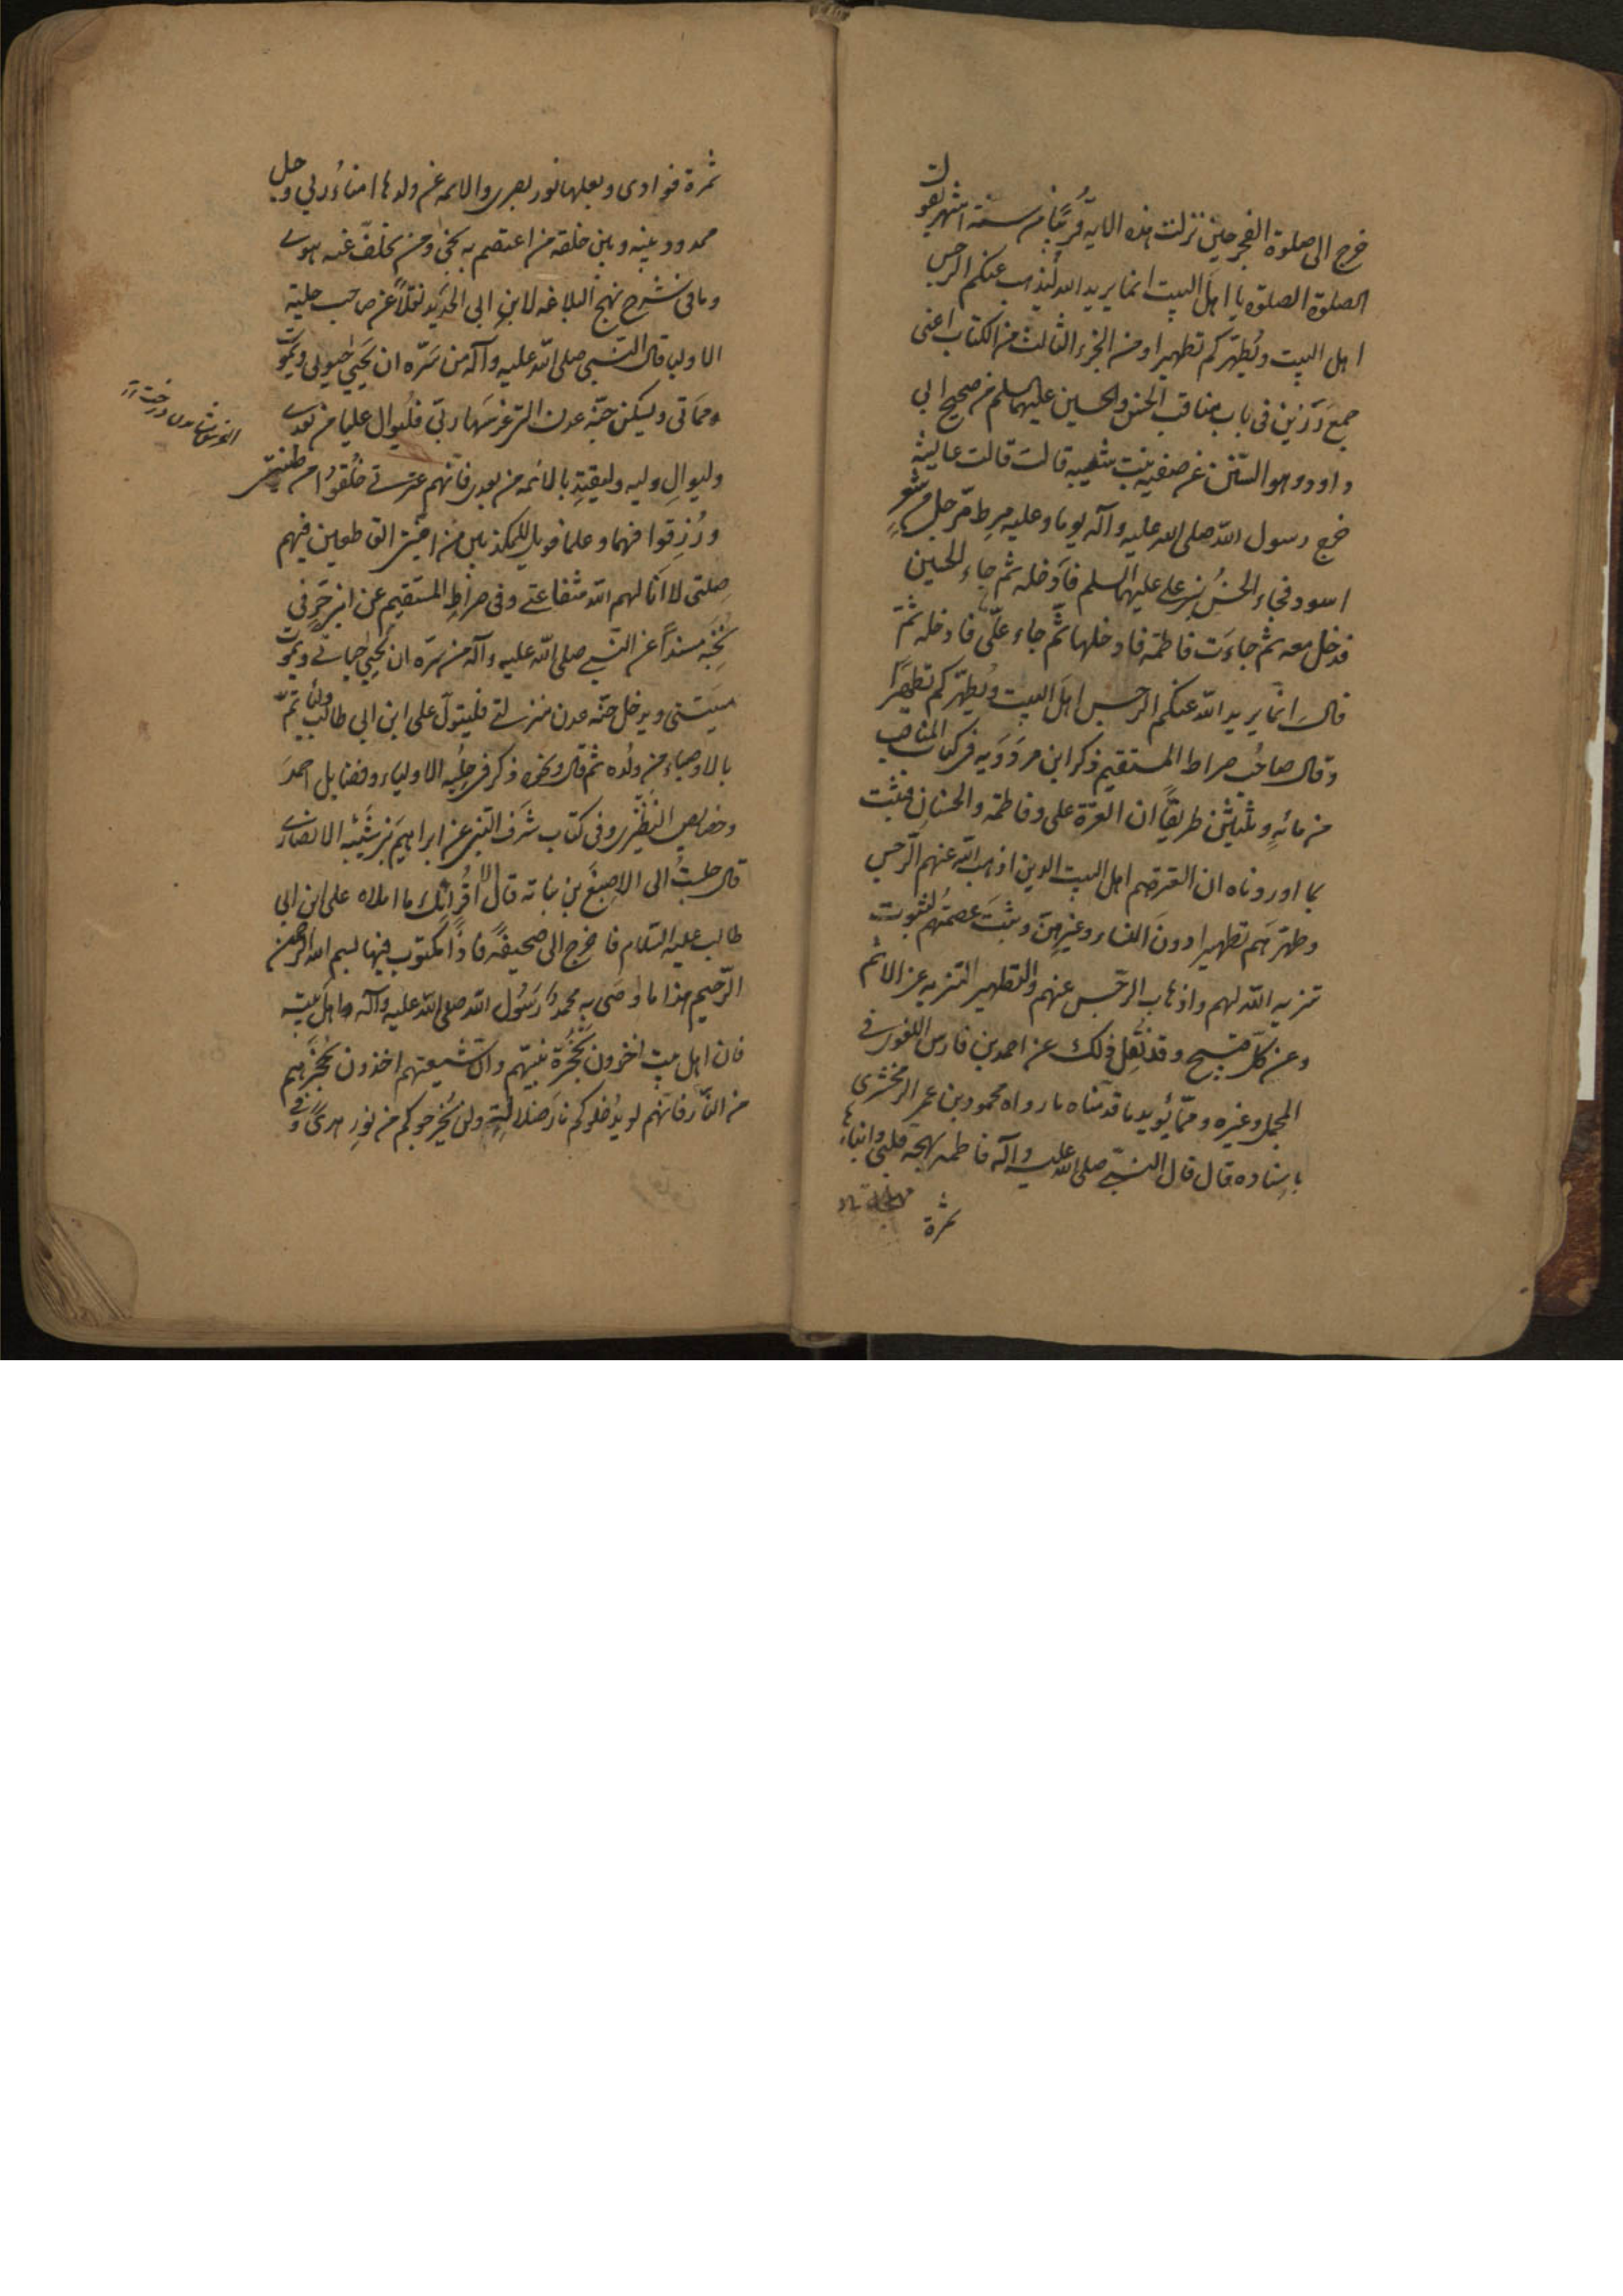 خرج الى صلوة الفجر حين نزلت هذه الاية قريبًا من ستة اشهر يقول
الصلوة الصلوة يا اهل البيت انما يريد الله ليذهب عنكم الرجس
اهل البيت ويُطهّركم تطهيرا ومن الجزء الثالث من الكتاب اعنى
جمع رَزين فى باب مناقب الحسن والحسين عليهما السلم من صحيح ابى
داود وهو السنن عن صفيه بنت شيبه قالت قالت عايشه
خرج رسول الله صلى الله عليه وآله يوما وعليه مِرط مرّحل من شعرٍ
اسود فجاء الحسنُ بن على عليهما السلم فَأدخله ثم جاء الحسين
فدخل معه ثم جاءَت فاطمة فادخلها ثم جاء علّى فادخله ثمّ
قال انّما يريد الله عنكم الرجس اهلَ البيت ويُطهّركم تطهيرًا
وقال صاحبُ صراط المستقيم ذكر ابن مردَوَيه فى كتاب المناقب
من مائهٍ وثلثين طريقاً ان العترة على وفاطمة والحسنانِ فيثبت
بما اوردناه ان العترة هم اهل البيت الذين اذهب الله عنهم الرّجس
وطهّرهم تطهيرا دونَ النساء وغيرهنّ وثبتَ عصمتهُم لثبوت
تنزيه الله لهم واذهاب الرجس عنهم والتطهير التنزيه عن الاثم
وعن كلّ قبيح وقد نُقِل ذلك عن احمد بن فارس اللغوى فى
المجمل وغيره وممّا يُويد ما قدمّناه ما رواه محمود بن عمر الزمخشرى
باسناده قال قال النبّى صلى الله عليه وآله فاطمه بهجه قلبى وابناءها
ثمرة
ثمرة فوادى وبعلها نور بصرى والائمه من ولدها امناءُ ربى وحبل
ممدود بينه وبين خلقه من اعتصم به نجى ومن تخلف عنه هوى
وما فى شرح نهج البلاغه لابنِ ابى الحديد نقلاً عن صاحب حلية
الاوليا قال النبّى صلى الله عليه وآله من سَرّه ان يَحيىٰ حيوتى ويموت
مماتى وليسكن جنّة عدن التى غرسها ربّى فليُوال عليا من بعدى
وليوالِ وليه وليقتدِ بالائمه من بعدى فانّهم عترتى خُلقُوا من طينتى
ورُزِقوا فهما وعلما فويل للمكذبين من امّتى القاطعين فيهم
صِلتى لا انالهم الله شفاعتى وفى صراطِ المستقيم عن ابن جَبر فى
نُخَبه مسنداً عن النّبى صلى الله عليه وآله من سرّه ان يحيىٰ حياتى ويموت
ميتتى ويدخل جنّه عدن منزلتى فليتولّ على ابن ابى طالب وليأتمّ
بالاوصياء من ولده ثم قال ونحوه ذكر فى حِليه الاولياء وفضايل احمدَ
وخصايص النطنزى وفى كتاب شرف النبى عن ابراهيم بن شَيبَه الانصارى
قال جلستُ الى الاصبغ بن نباته قال الا اُقرئك ما املاه على ابن ابى
طالب عليه السّلام فاخرج الىّ صحيفةً فاذاً مكتوب فيها بسم الله الرحمن
الرّحيم هذا ما اوصَى به محمدٌ رَسُول الله صلى الله عليه وآله اهلَ بيته
فان اهل بيت اخذون بحُجزة نبيّهم وانّ شيعتهم اخذون بحُجزهم
من النّار فانّهم لن يُدخلوكم نارَ ضلالةٍ ولن يُخرجوكم من نورِ هدىً وفى